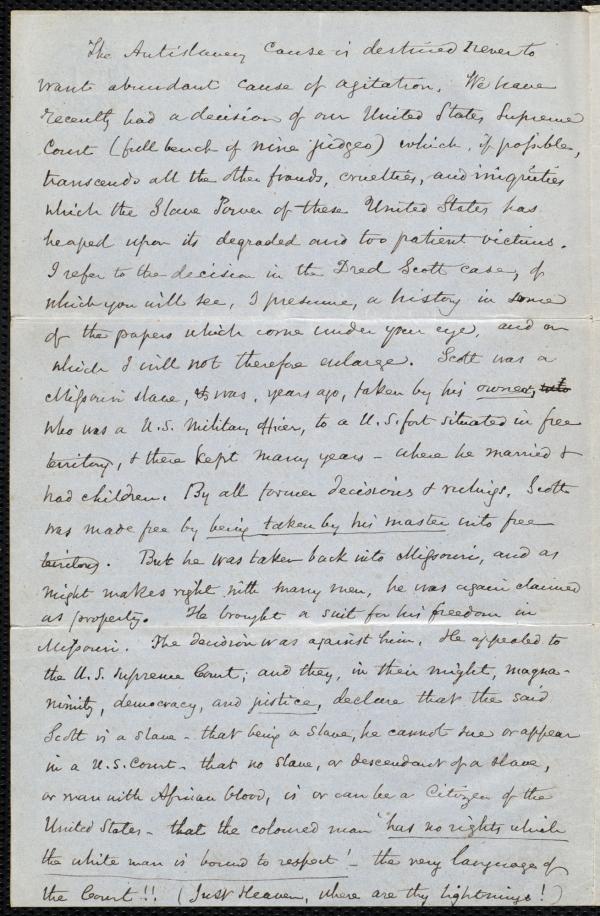 The Antislavery Cause is destined never to
want abundant cause of agitation. We have
recently had a decision of our United States Supreme
Court (full bench of nine judges) which, if possible,
transcends all the other frauds, cruelties, and iniquities
which the Slave Power of these United States has
heaped upon its degraded and too patient victims.
I refer to the decision in the Dred Scott case, of
which you will see, I presume, a history in some
of the papers which come under your eye, and on
which I will not therefore enlarge. Scott was a
Missouri slave, & was, years ago, taken by his owner,
who was a U.S. Military officer, to a U.S. fort situated in free
territory, & there kept many years - where he married &
had children. By all former decisions & rulings, Scott
was made free by being taken by his master into free
territory. But he was taken back into Missouri, and as
might makes right with many men, he was again claimed
as property. He brought a suit for his freedom in
Missouri. The decision was against him. He appealed to
the U.S. Supreme Court; and they, in their might, magna-
nimity, democracy, and justice, declare that the said
Scott is a slave - that being a slave, he cannot sue or appear
in a U.S. Court - that no slave, or descendant of a slave,
or man with African blood, is or can be a Citizen of the
United States - that the coloured man "has no rights which
the white man is bound to respect" - the very language of
the Court!! (Just Heaven, where are thy lightnings!)